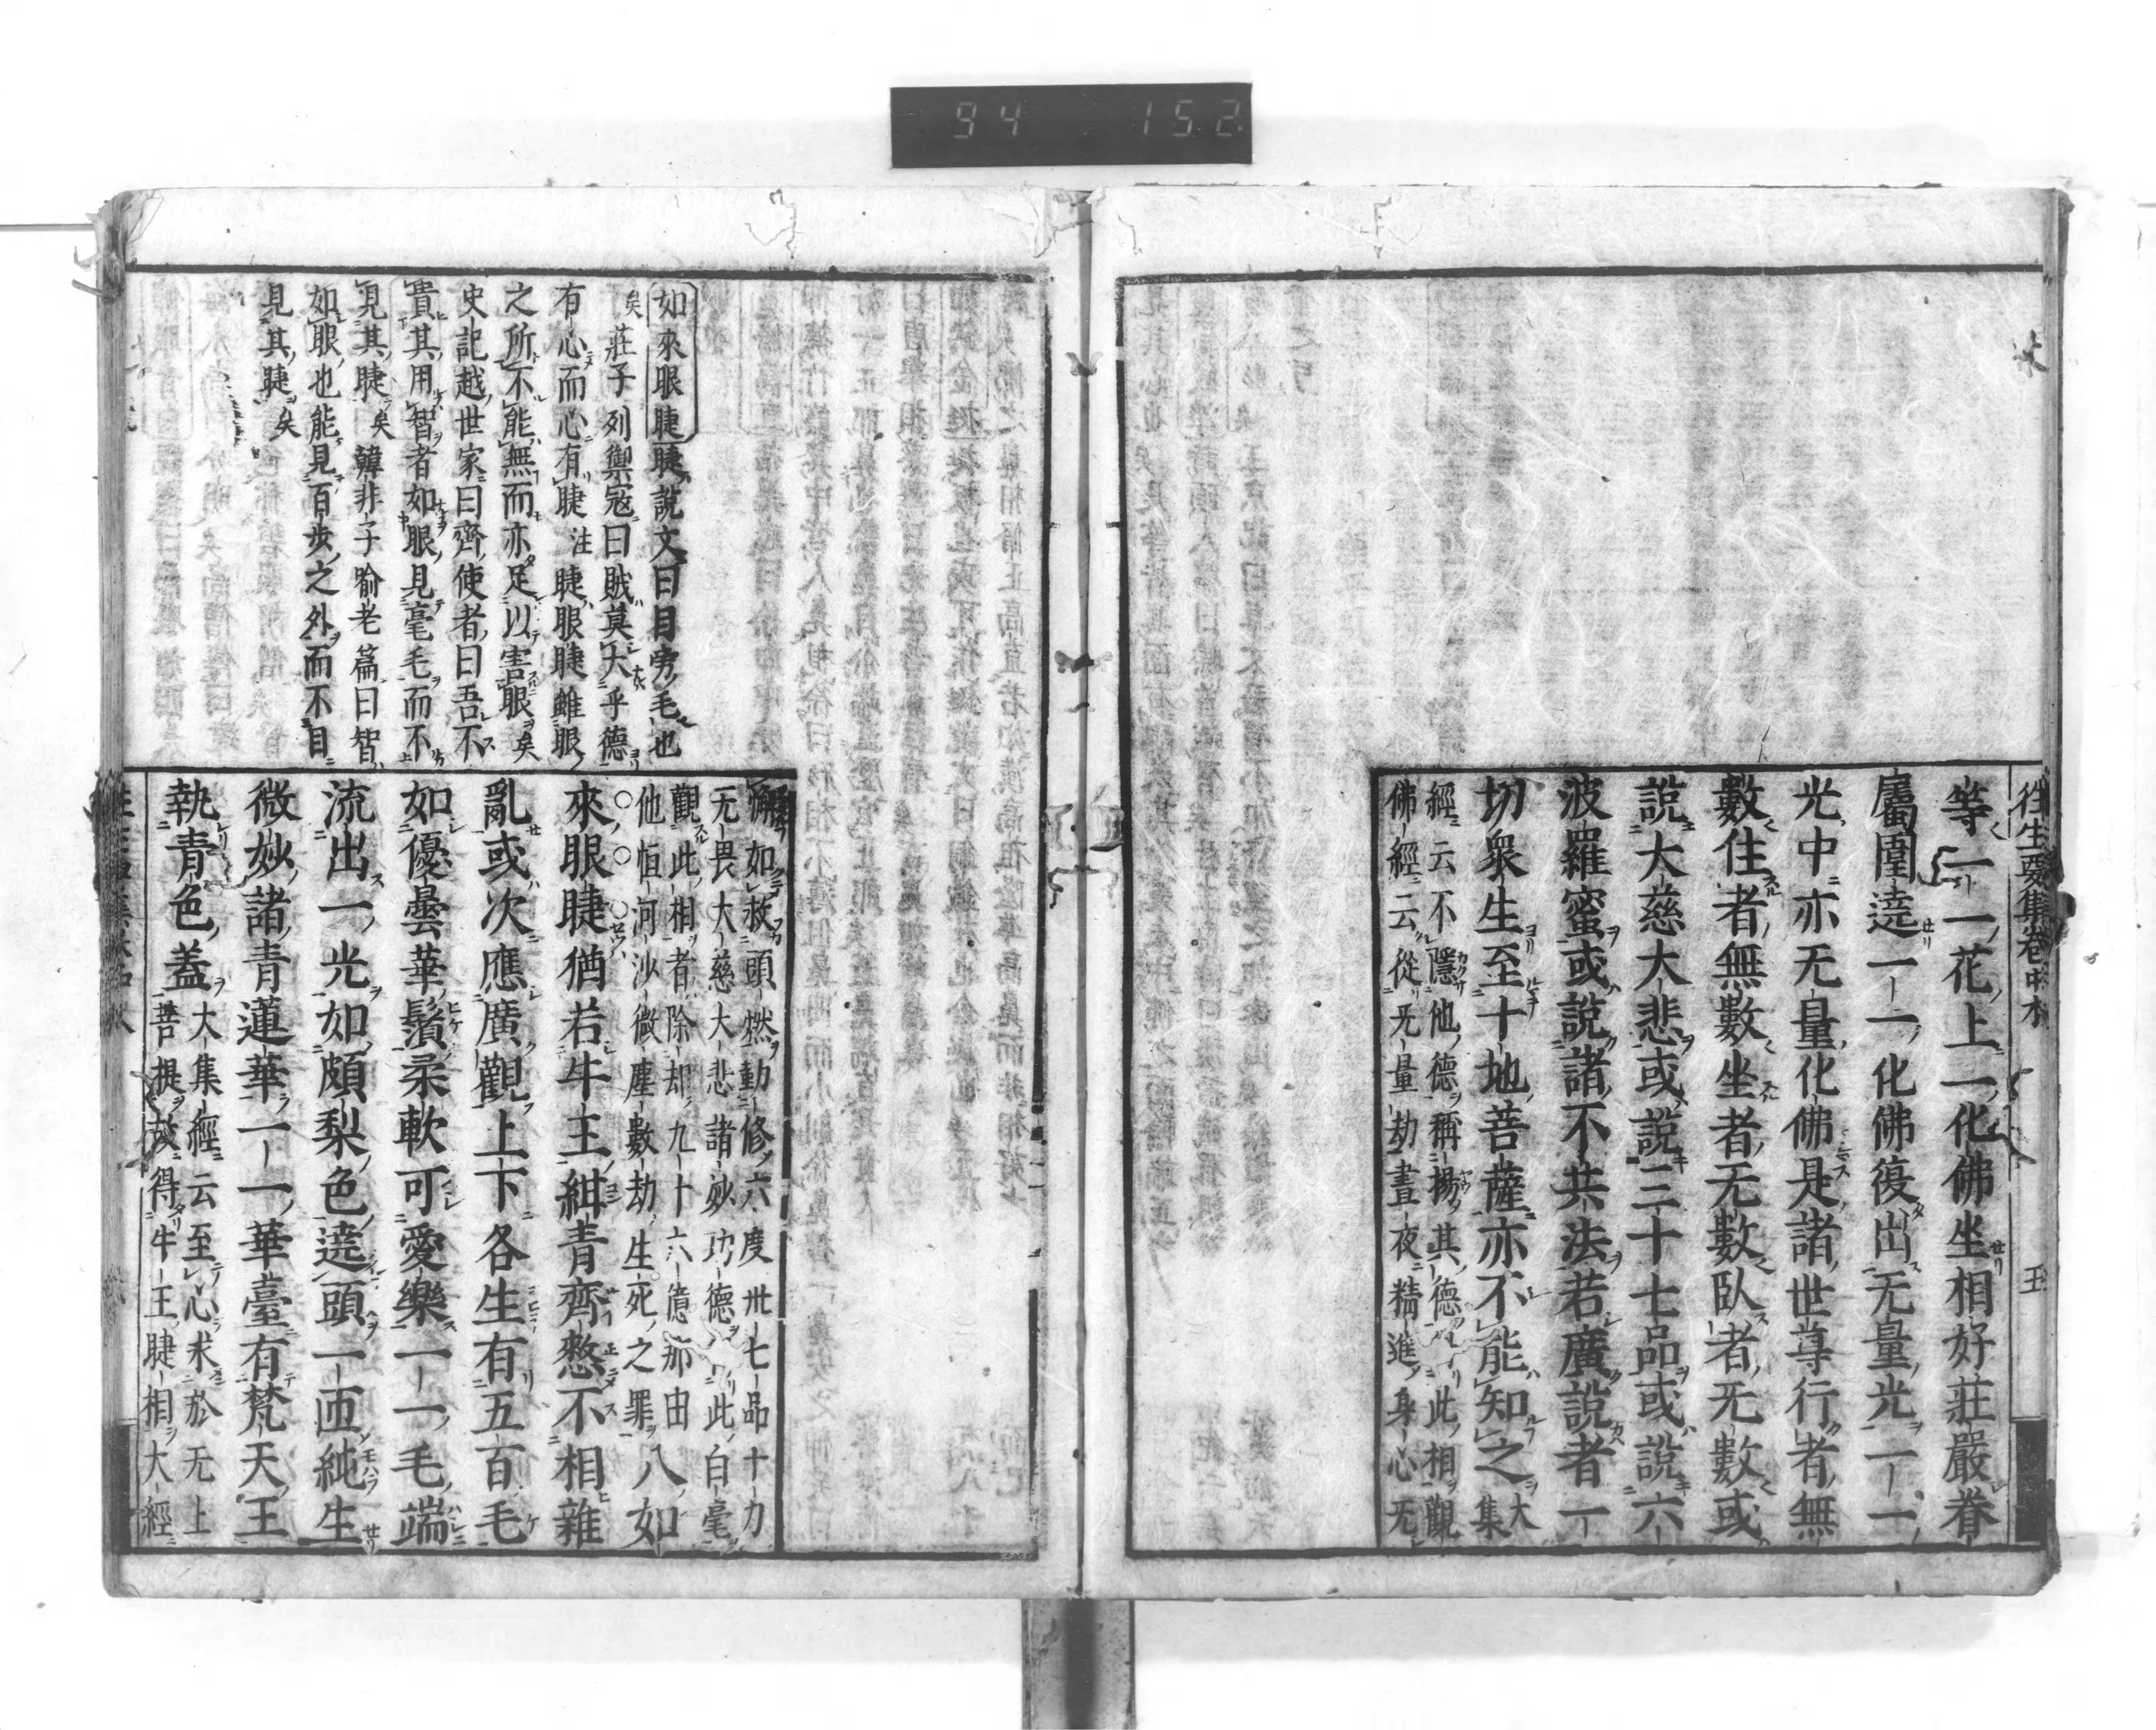 94 152
往生要集卷中本 五
等一一花上一化佛坐相好莊嚴眷
屬圍遶一一化佛復出无量光一一
光中亦无量化佛是諸世尊行者無
數住者無數坐者无數臥者无數或
說大慈大悲或說三十七品或說六
波羅蜜或說諸不共法若廣說者一
切衆生至十地菩薩亦不能知之大集
經云不隱他德稱揚其德此相觀
佛經云從无量劫晝夜精進身心无
懈如救頭燃勤修六度卅七品十力
无畏大慈大悲諸妙功德此白毫
觀此相者除却九十六億那由
他恒河沙微塵數劫生死之罪八如
來眼睫猶若牛王紺青齊整不相雜
亂或次應廣觀上下各生有五百毛
如優曇華鬚柔軟可愛樂一一毛端
流出一光如頗梨色遶頭一匝純生
微妙諸青蓮華一一華臺有梵天王
執青色蓋大集經云至心求於无上
菩提故得牛王睫相大經
如來眼睫睫說文曰目旁毛也
矣莊子列禦寇曰賊莫大乎德
有心而心有睫注睫眼睫雖眼
之所不能無而亦足以害眼矣
史記越世家曰齊使者曰吾不
貴其用智者如眼見毫毛而不
見其睫矣韓非子喻老篇曰智
如眼也能見百步之外而不自
見其睫矣